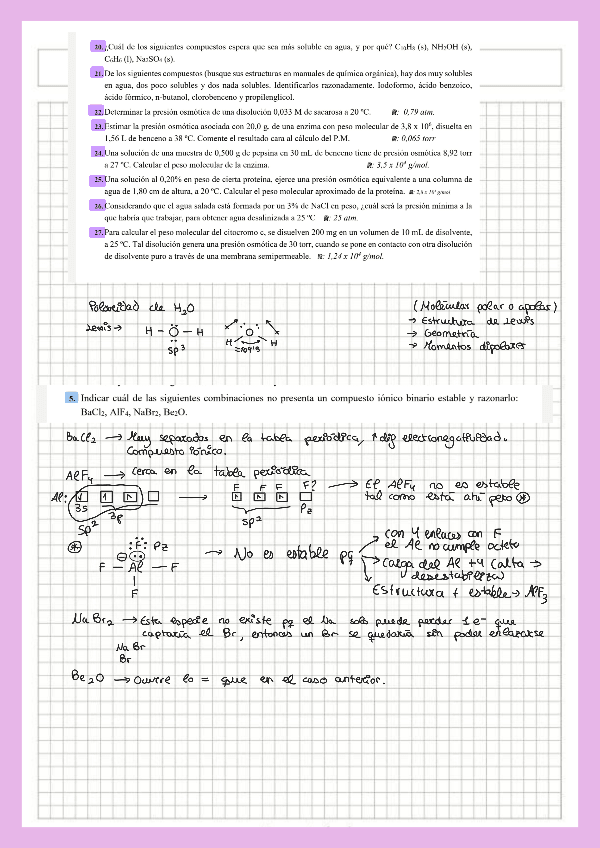 20. ¿Cuál de los siguientes compuestos espera que sea más soluble en agua, y por qué? C₁₀H₈ (s), NH₂OH (s),
C₆H₆ (l), Na₂SO₄ (s).
21. De los siguientes compuestos (busque sus estructuras en manuales de química orgánica), hay dos muy solubles
en agua, dos poco solubles y dos nada solubles. Identifícarlos razonadamente. Iodoformo, ácido benzoico,
ácido fórmico, n-butanol, clorobenceno y propilenglicol.
22. Determinar la presión osmótica de una disolución 0,033 M de sacarosa a 20 ºC. R: 0,79 atm.
23. Estimar la presión osmótica asociada con 20,0 g. de una enzima con peso molecular de 3,8 x 10⁶, disuelta en
1,56 L de benceno a 38 ºC. Comente el resultado cara al cálculo del P.M. R: 0,065 torr
24. Una solución de una muestra de 0,500 g de pepsina en 30 mL de benceno tiene de presión osmótica 8,92 torr
a 27 ºC. Calcular el peso molecular de la enzima. R: 3,5 x 10⁴ g/mol.
25. Una solución al 0,20% en peso de cierta proteína, ejerce una presión osmótica equivalente a una columna de
agua de 1,80 cm de altura, a 20 ºC. Calcular el peso molecular aproximado de la proteína.
26. Considerando que el agua salada está formada por un 3% de NaCl en peso, ¿cuál será la presión mínima a la
que habría que trabajar, para obtener agua desalinizada a 25 ºC R: 25 atm.
27. Para calcular el peso molecular del citocromo c, se disuelven 200 mg en un volumen de 10 mL de disolvente,
a 25 ºC. Tal disolución genera una presión osmótica de 30 torr, cuando se pone en contacto con otra disolución
de disolvente puro a través de una membrana semipermeable. R: 1,24 x 10⁴ g/mol.
Polaridad de H₂O
(Moléculas polar o apolar)
→ Estructura de Lewis
Lewis → H - O - H
O
→ Geometría
H H
→ Momentos dipolares
sp³
5. Indicar cuál de las siguientes combinaciones no presenta un compuesto iónico binario estable y razonarlo:
BaCl₂, AlF₄, NaBr₂, Be₂O.
BaCl₂ → Muy separados en la tabla periódica, ↑ dif electronegatividad.
Compuesto iónico.
AlF₄ → Cerca en la tabla periódica
F F F F?
→ El AlF₄ no es estable
Al:
tal como está ahí pero ⊛
3s 3p
sp² Pz
sp²
⊛ F Pz
F - Al - F
F
→ No es estable pq
con 4 enlaces con F
el Al no cumple octeto
Carga del Al +4 (alta →
desestabiliza)
Estructura + estable → AlF₃
NaBr₂ → Esta especie no existe pq el Na solo puede perder 1 e⁻ que
captaría el Br, entonces un Br se quedaría sin poder enlazarse
Na Br
Br
Be₂O → Ocurre lo = que en el caso anterior.